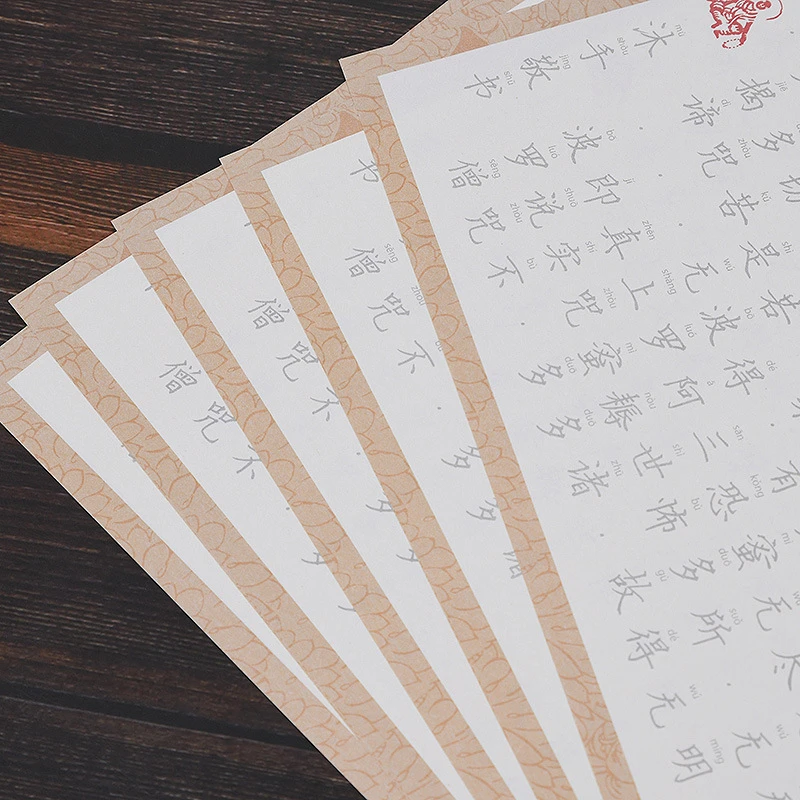 wú míng
无明
wú
尽 无
wú suǒ dé
无所得
mì duō gù
蜜多故
kǒng bù
有 恐怖
sān shì zhū
三世诸
dé ā nòu duō
得阿耨多
bō luó mì duō
若波罗蜜多
shì wú shàng zhòu
是无上咒
kǔ zhēn shí bù
切苦 真实不
zhòu jí shuō zhòu
多咒 即说咒
jiē dì bō luó sēng
揭谛 波罗僧
mù shǒu jìng shū
沐手敬书
书
sēng
僧
zhòu
咒
bù
不
多
多
僧
咒
不
多
多
僧
咒
不
多